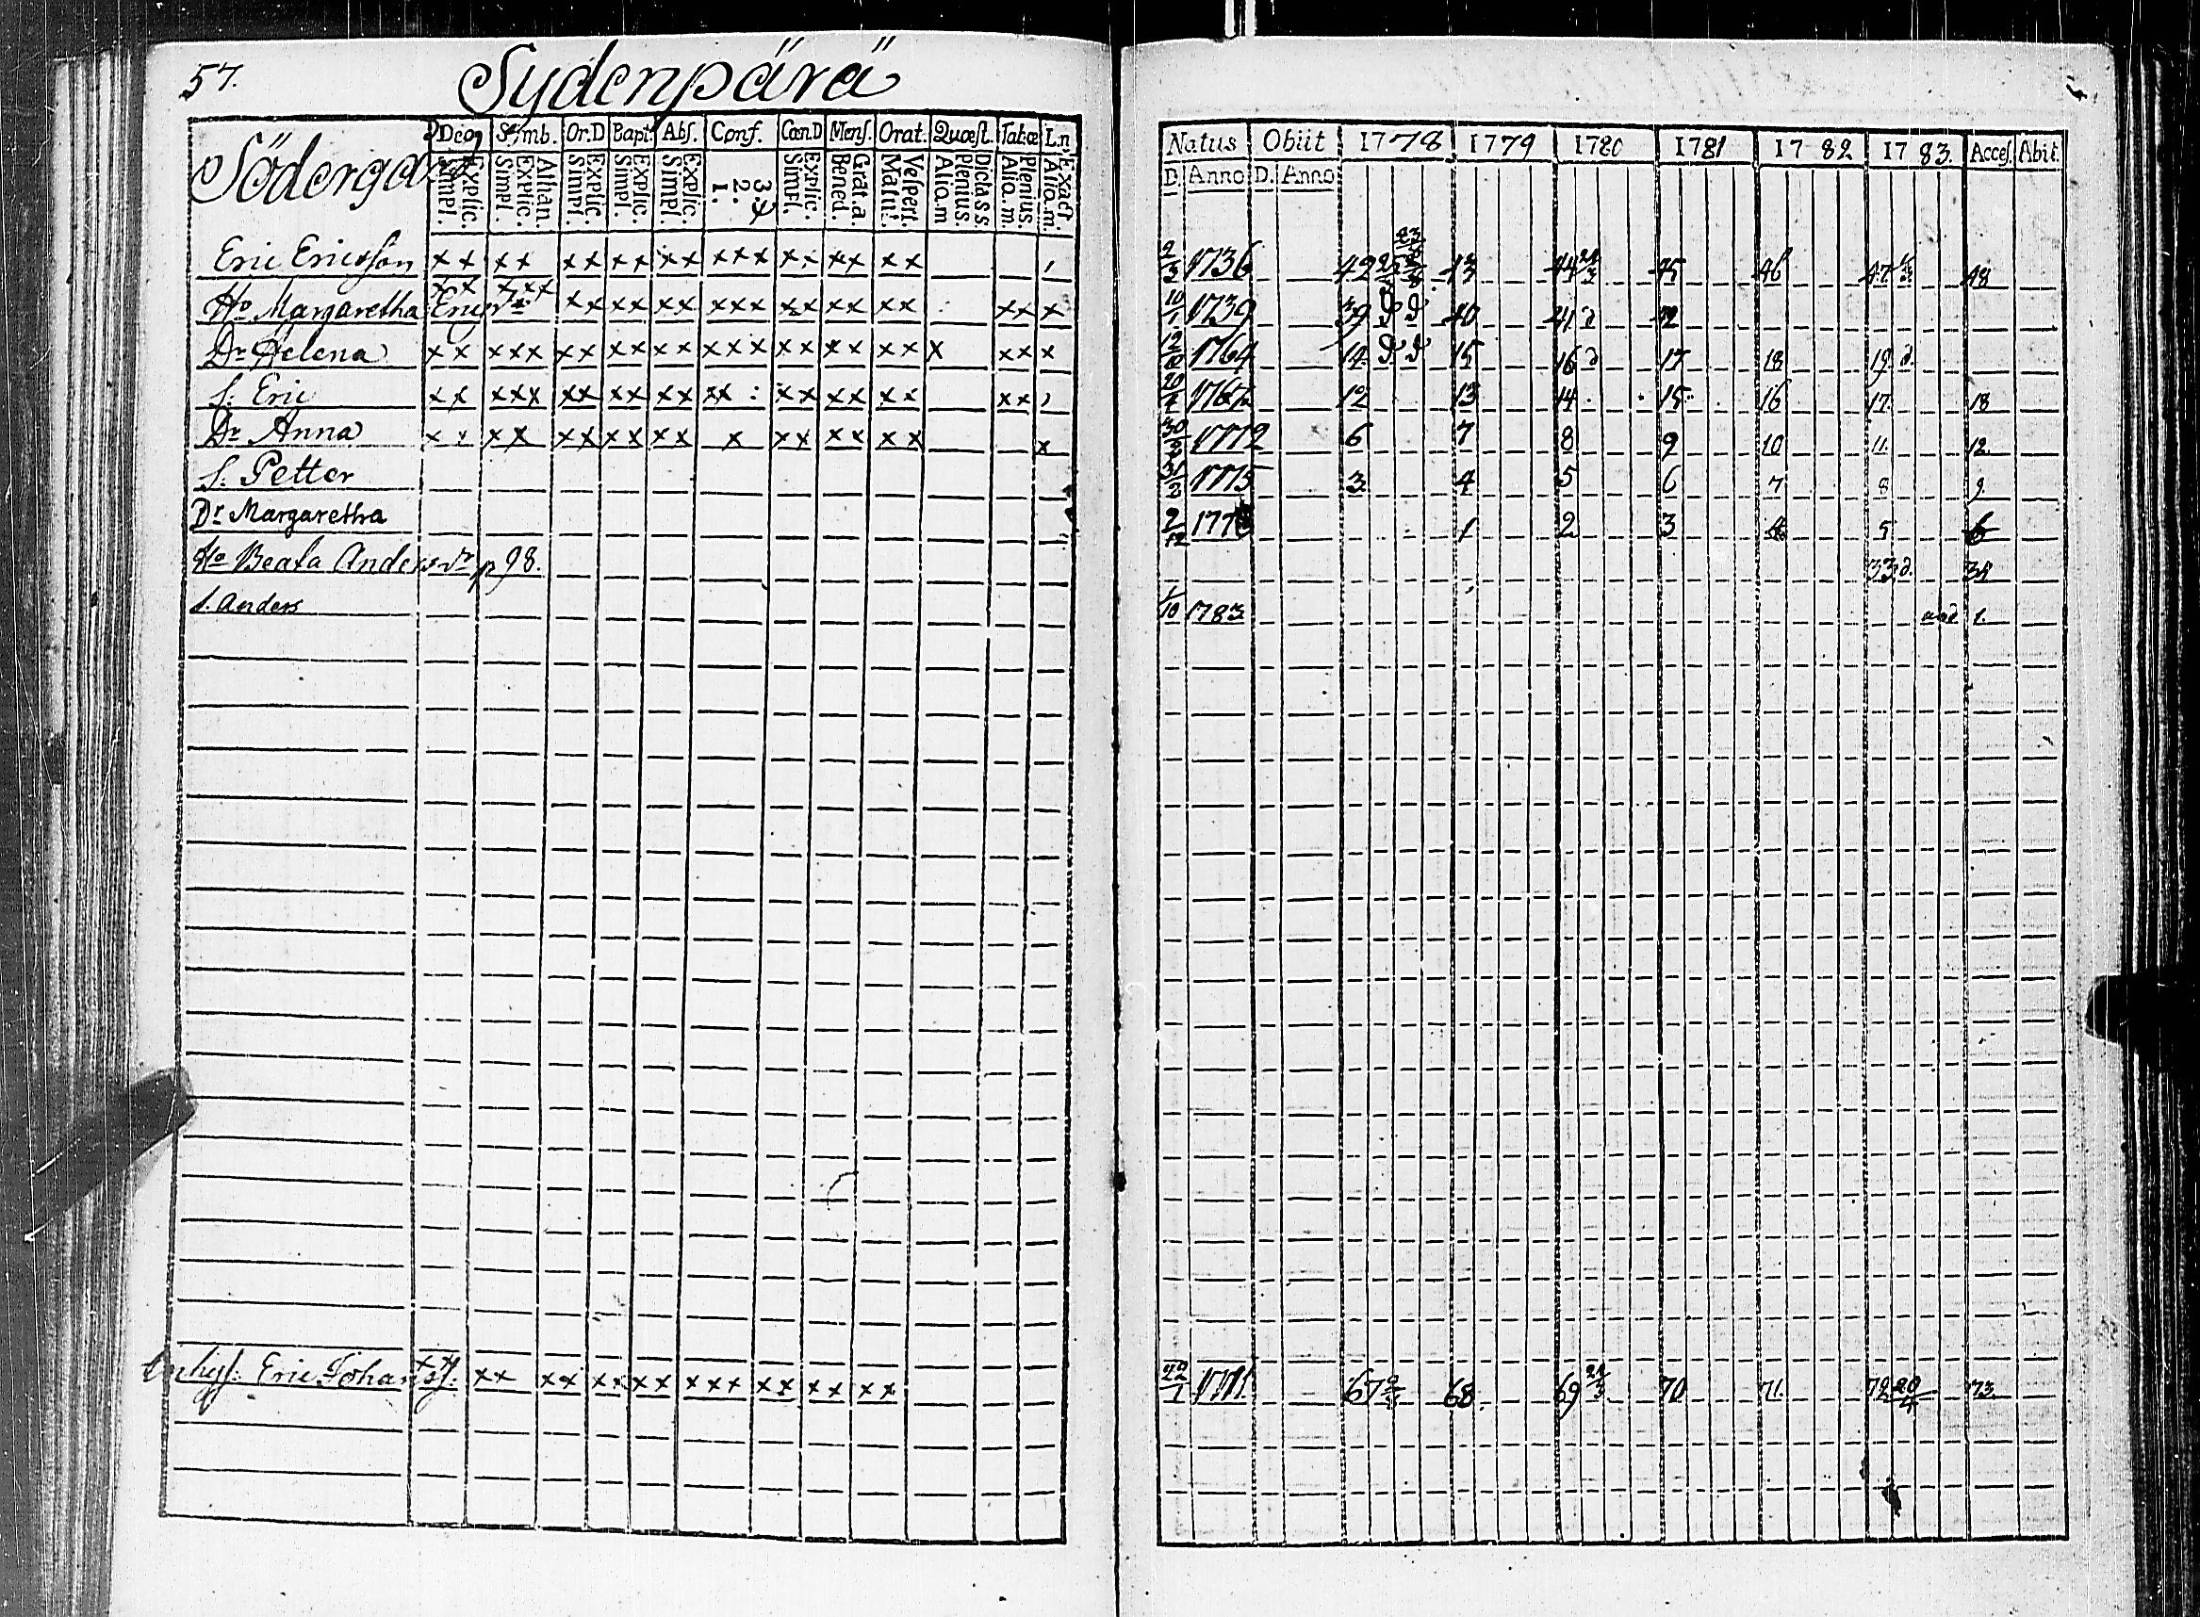 57.
Sydenpärä
Södergård
Dcog Symb. Or.D Bapt. Abſ. Conf. Cœn D Menſ. Orat. Quæſt. Tab.œ L.n
Simpl. Explic. Simpl. Explic. Athan. Simpl. Explic. Simpl. Explic. Simpl. Explic. 1. 2. 3.4 Simpl. Explic. Bened. Grat.a. Matut. Veſpert. Alio.m Plenius. Dicta s s. Alio.m. Plenius. Alio.m. Exact.
Natus Obiit 1778 1779 1780 1781 1782 1783. Acceſ. Abit.
D. Anno D. Anno
Eric Ericsſon x x x x x x x x x x x x x x x x x x x 2/3 1736 42 43 44 24/3 45 46 47 48
x x x x x
Ho Margaretha Ericsdr x x x x x x x x x x x x x x x x x x 10/1 1739 39 d d 40 41 d 42
Dr Helena x x x x x x x x x x x x x x x x x x x x x x x x x 1764 14 d d 15 16 d 17 18 19 d
ſ. Eric x x x x x x x x x x x x x : x x x x x x x x 12 13 14 15 16 17 18
Dr Anna x x x x x x x x x x x x x x x x x x 1772 6 7 8 9 10 11. 12.
ſ. Petter 1775 3 4 5 6 7 8 9.
Dr Margaretha 9/12 177 1 2 3 4 5 6
Ho Beata Andersdr p 98. 33 d.
ſ. Anders 1/10 1783 1.
Eric Johansſ. x x x x x x x x x x x x x x x x x 22/1 67 68 69 24/3 70 71 72 20/4 73